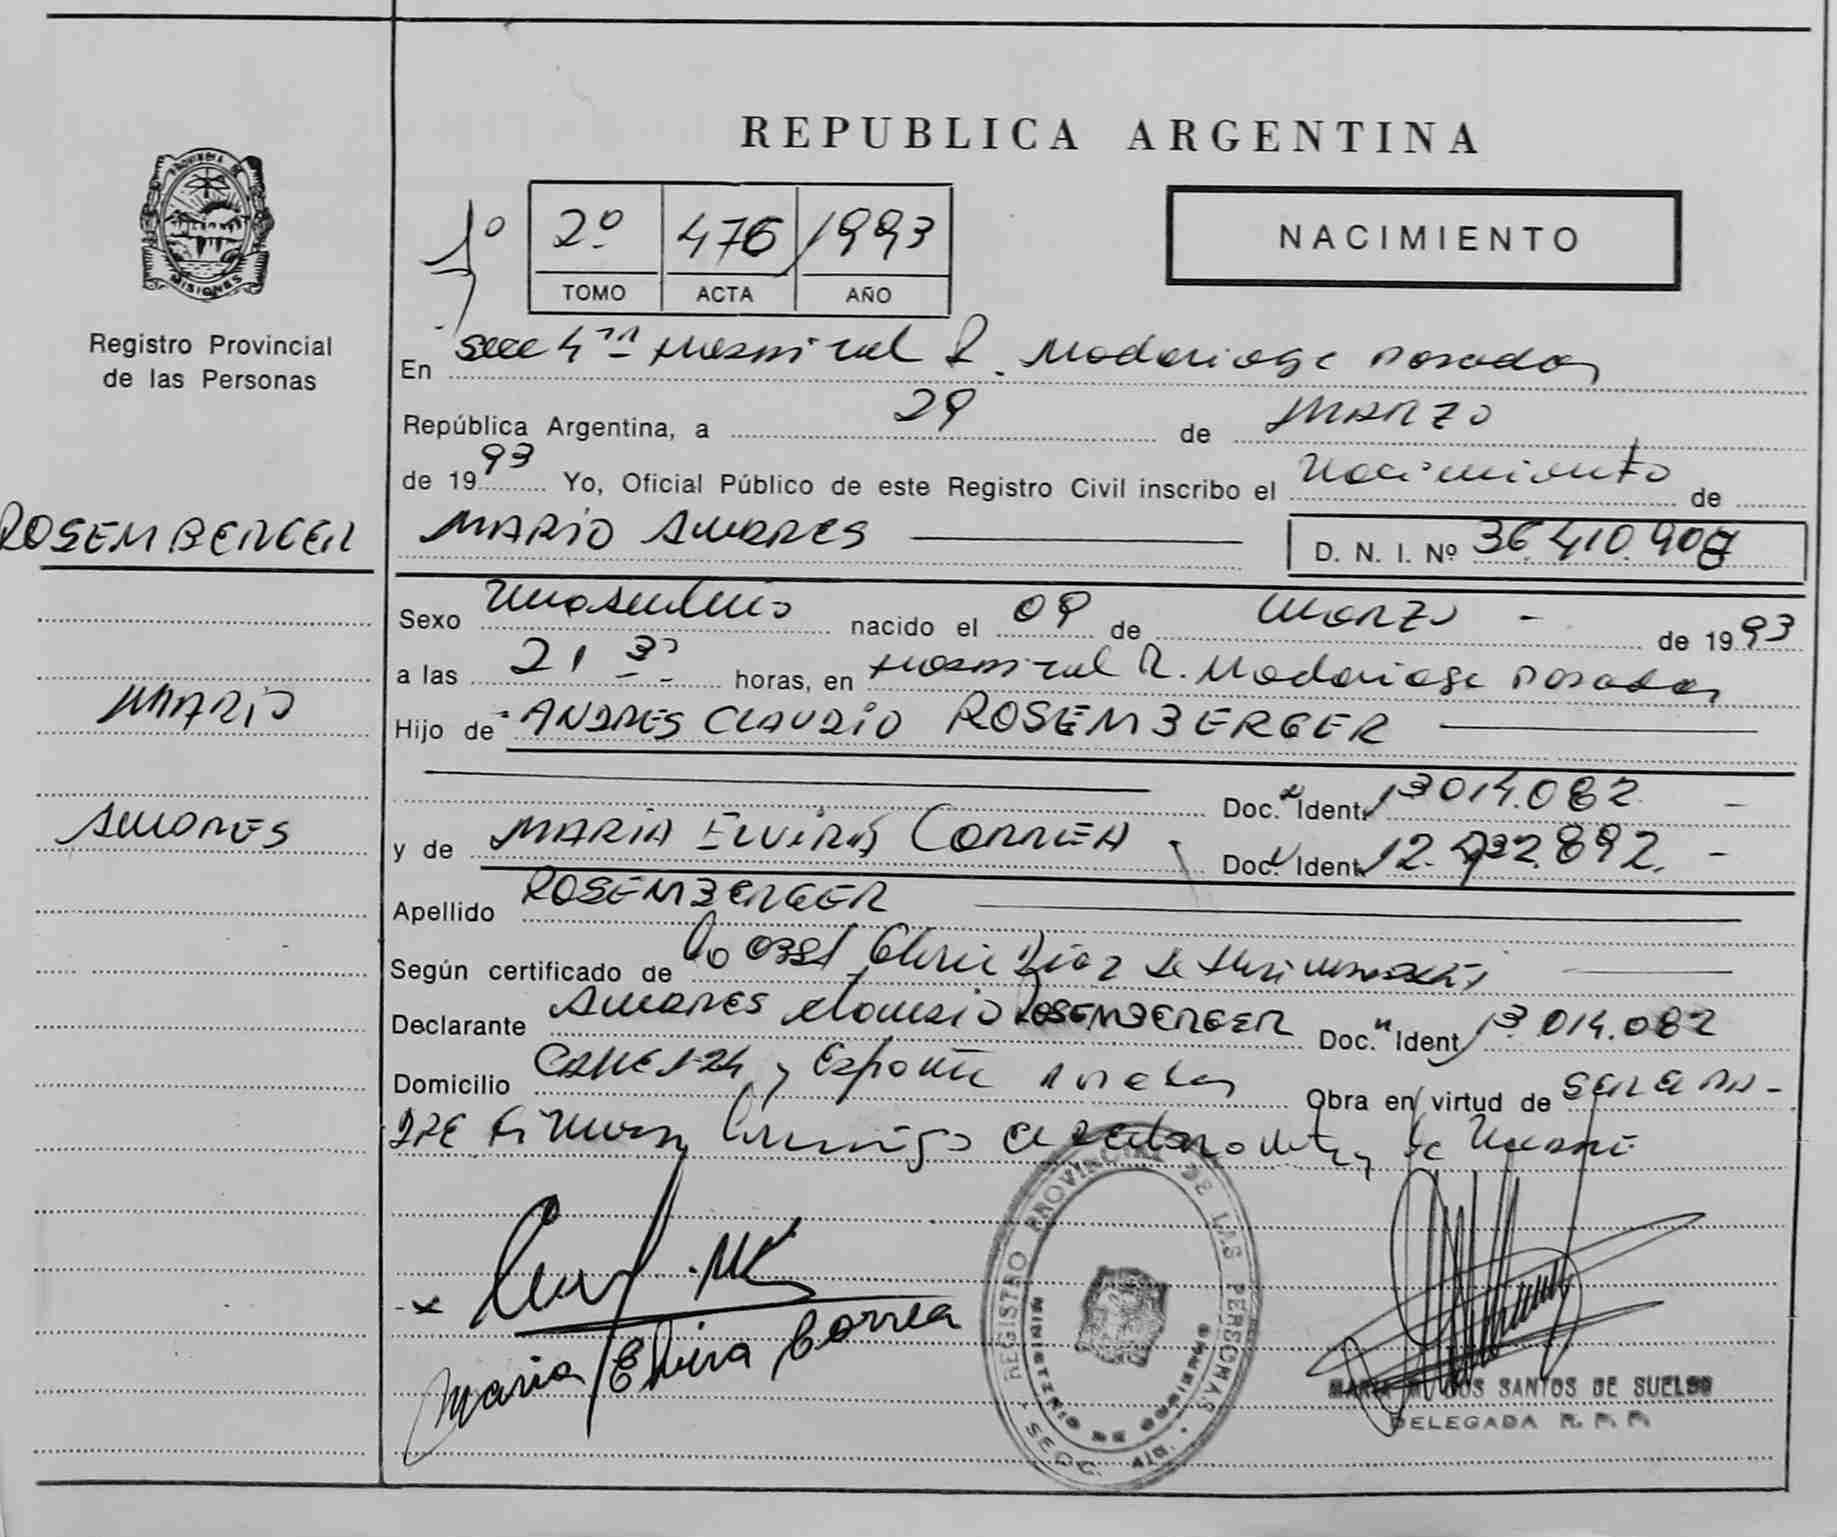 REPUBLICA ARGENTINA
PROVINCIA DE MISIONES
Registro Provincial
de las Personas
1º
2º 476 1993
TOMO ACTA AÑO
NACIMIENTO
En Secc 4ta Hospital R. Madariaga Posadas
República Argentina, a 29 de MARZO
de 1993 Yo, Oficial Público de este Registro Civil inscribo el Nacimiento de
ROSEMBERGER
MARIO ANDRES D. N. I. Nº 36.410.908
Sexo Masculino nacido el 09 de Marzo - de 1993
a las 21 30 horas, en Hospital R. Madariaga Posadas
MARIO
Hijo de ANDRES CLAUDIO ROSEMBERGER
Doc. Ident. 13014.082 -
ANDRES
y de MARIA ELVIRA CORREA Doc. Ident. 12.732.892. -
Apellido ROSEMBERGER
Según certificado de Obst Diaz de
Declarante ANDRES Claudio ROSEMBERGER Doc. Ident. 13.014.082
Domicilio CALLE 124 y Posadas Obra en virtud de SER EL PA-
DRE Firman conmigo el declarante y la Madre
Maria Elvira Correa
REGISTRO PROVINCIAL DE LAS PERSONAS
MINISTERIO DE GOBIERNO
MARIA M. DOS SANTOS DE SUELDO
DELEGADA R. P. P.